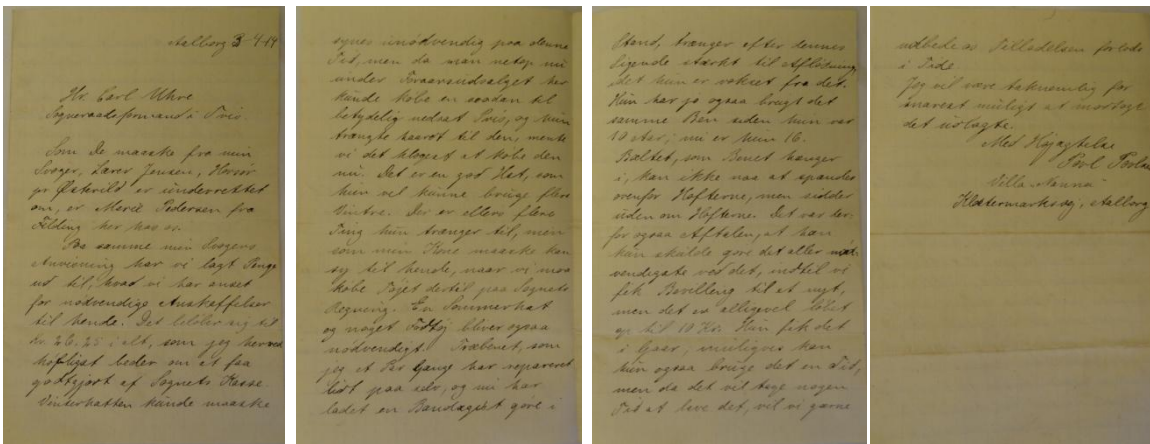 Aalborg 3-4-19
Hr. Carl Uhre
Sogneraadsformand i Tvis.
Som De maaske fra min
Svoger, Lærer Jensen, Hovsør
pr Østerild er underrettet
om, er Marie Pedersen fra
Tilding her hos os.
Paa samme min Svogers
Anvisning har vi lagt Penge
ud til, hvad vi har anset
for nødvendige Anskaffelser
til hende. Det beløber sig til
Kr. 26.25 i alt, som jeg herved
høfligst beder om at faa
godtgjort af Sognets Kasse.
Vinterhatten kunde maaske
synes unødvendig paa denne
Tid, men da man netop nu
under Foraarsudsalget her
kunde købe en saadan til
betydelig nedsat Pris, og hun
trængte saart til den, mente
vi det klogest at købe den
nu. Det er en god Hat, som
hun vil kunne bruge flere
Vintre. Der er ellers flere
Ting hun trænger til, men
som min Kone maaske kan
sy til hende, naar vi maa
købe Tøjet dertil paa Sognets
Regning. En Sommerhat
og noget Fodtøj bliver ogsaa
nødvendigt. Træbenet, som
jeg et Par Gange har repareret
lidt paa selv, og nu har
ladet en Bandagist gøre i
Stand, trænger efter dennes
Sigende stærkt til Afløsning,
idet hun er vokset fra det.
Hun har jo ogsaa brugt det
samme Ben siden hun var
10 Aar; nu er hun 16.
Bæltet, som Benet hænger
i, kan ikke naa at spændes
ovenfor Hofterne, men sidder
uden om Hofterne. Det var der-
for ogsaa Aftalen, at han
kun skulde gøre det aller nød-
vendigste ved det, indtil vi
fik Bevilling til et nyt,
men det er alligevel løbet
op til 10 Kr. Hun fik det
i Gaar, muligvis kan
hun ogsaa bruge det en Tid,
men da det vil tage nogen
Tid at lave det, vil vi gerne
udbede os Tilladelsen forlods
i Tide.
Jeg vil være taknemlig for
snarest muligt at modtage
det udlagte.
Med Højagtelse
Povl Povlsen
Villa "Nanna"
Klostermarksvej, Aalborg